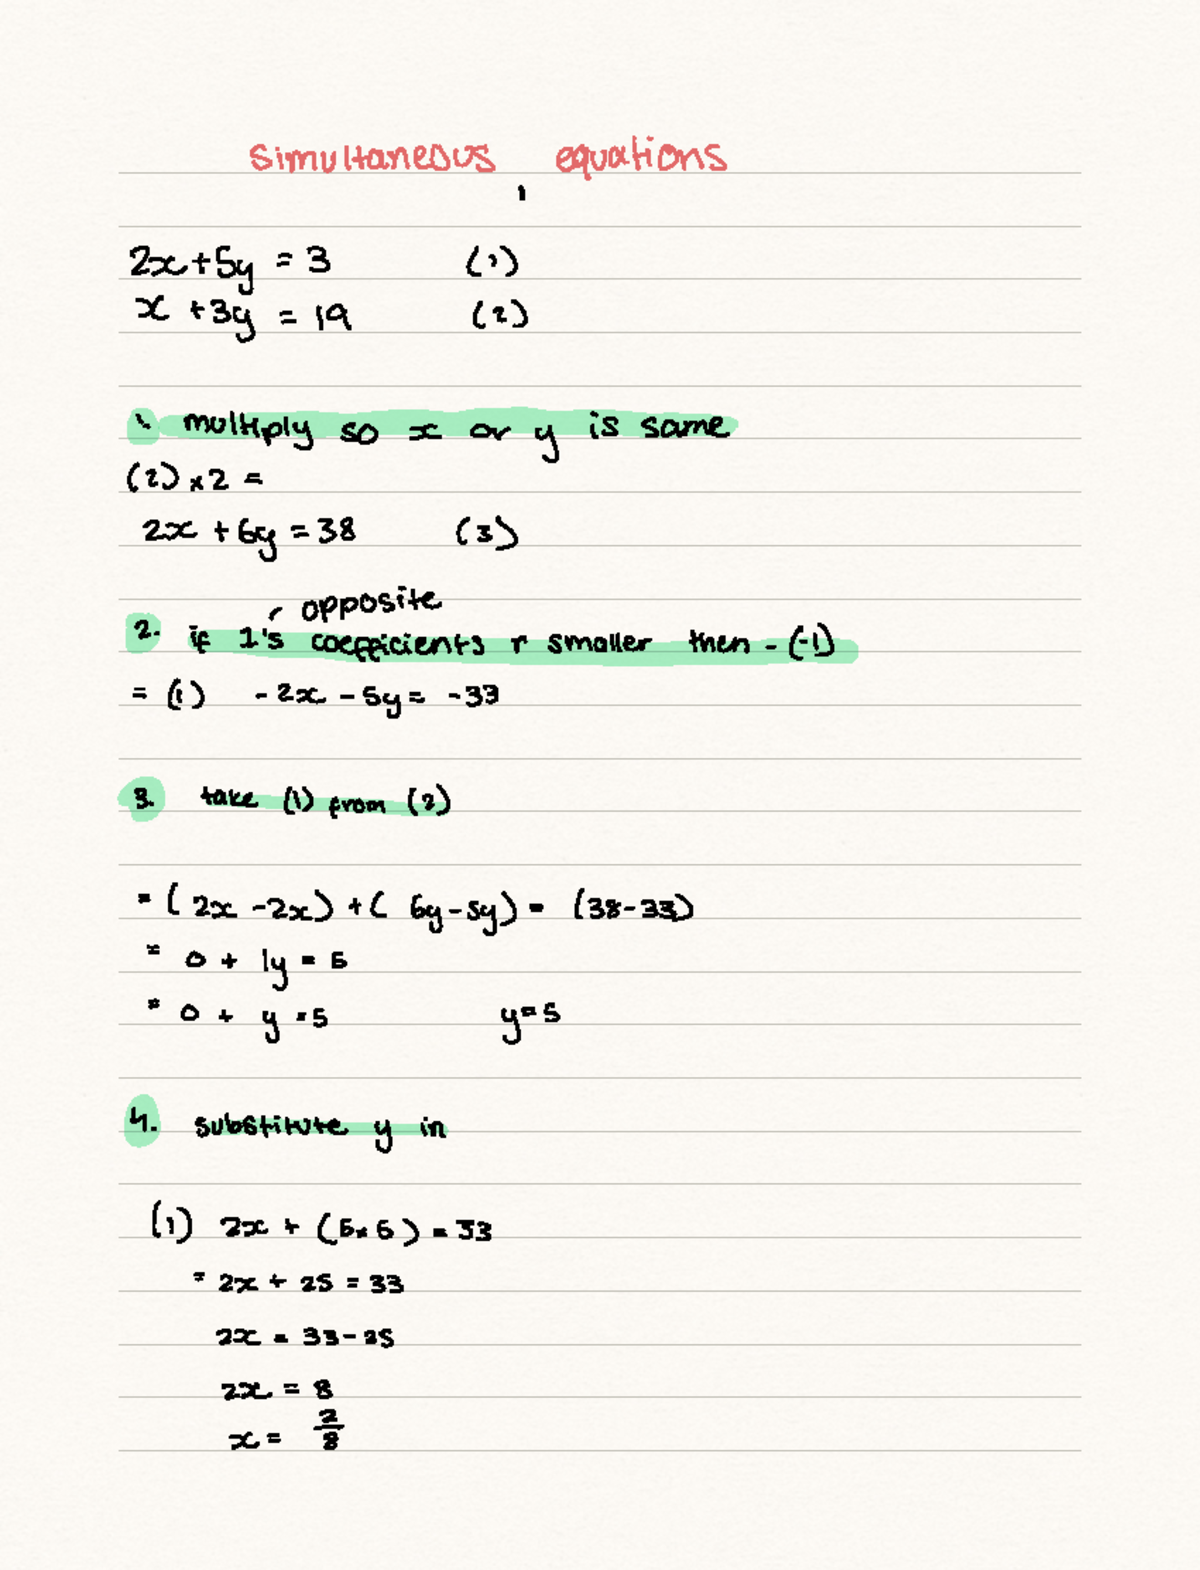 simultaneous equations
2x+5y = 3 (1)
x +3y = 19 (2)
1. multiply so x or y is same
(2) x 2 =
2x + 6y = 38 (3)
opposite
2. if 1's coefficients r smaller then - (-1)
= (1) -2x - 5y = -33
3. take (1) from (2)
= (2x -2x) + (6y-5y) = (38-33)
= 0 + 1y = 5
= 0 + y = 5 y=5
4. substitute y in
(1) 2x + (5x5) = 33
= 2x + 25 = 33
2x = 33-25
2x = 8
x = 2/8